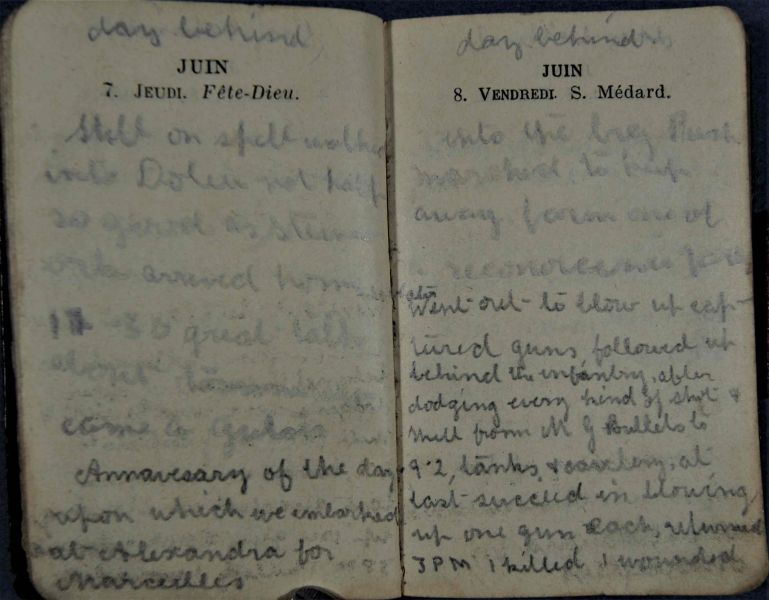 day behind
JUIN
7. JEUDI. Fête-Dieu.
Still on spell walked
into Doleu not half
so good as
arrived home
11-30 great talk
about
came a
Annavesary of the day
upon which we embarked
at Alexandra for
Marceilles
day behind
JUIN
8. VENDREDI. S. Médard.
into the big Push
marched to keep
away from one of
reconoce
Went out to blow up cap-
tured guns, followed up
behind the infantry, after
dodging every kind of shot &
shell from M G Bullets to
9.2, tanks & cavelery, at
last succeed in blowing
up one gun each, returned
3 PM 1 killed 1 wounded